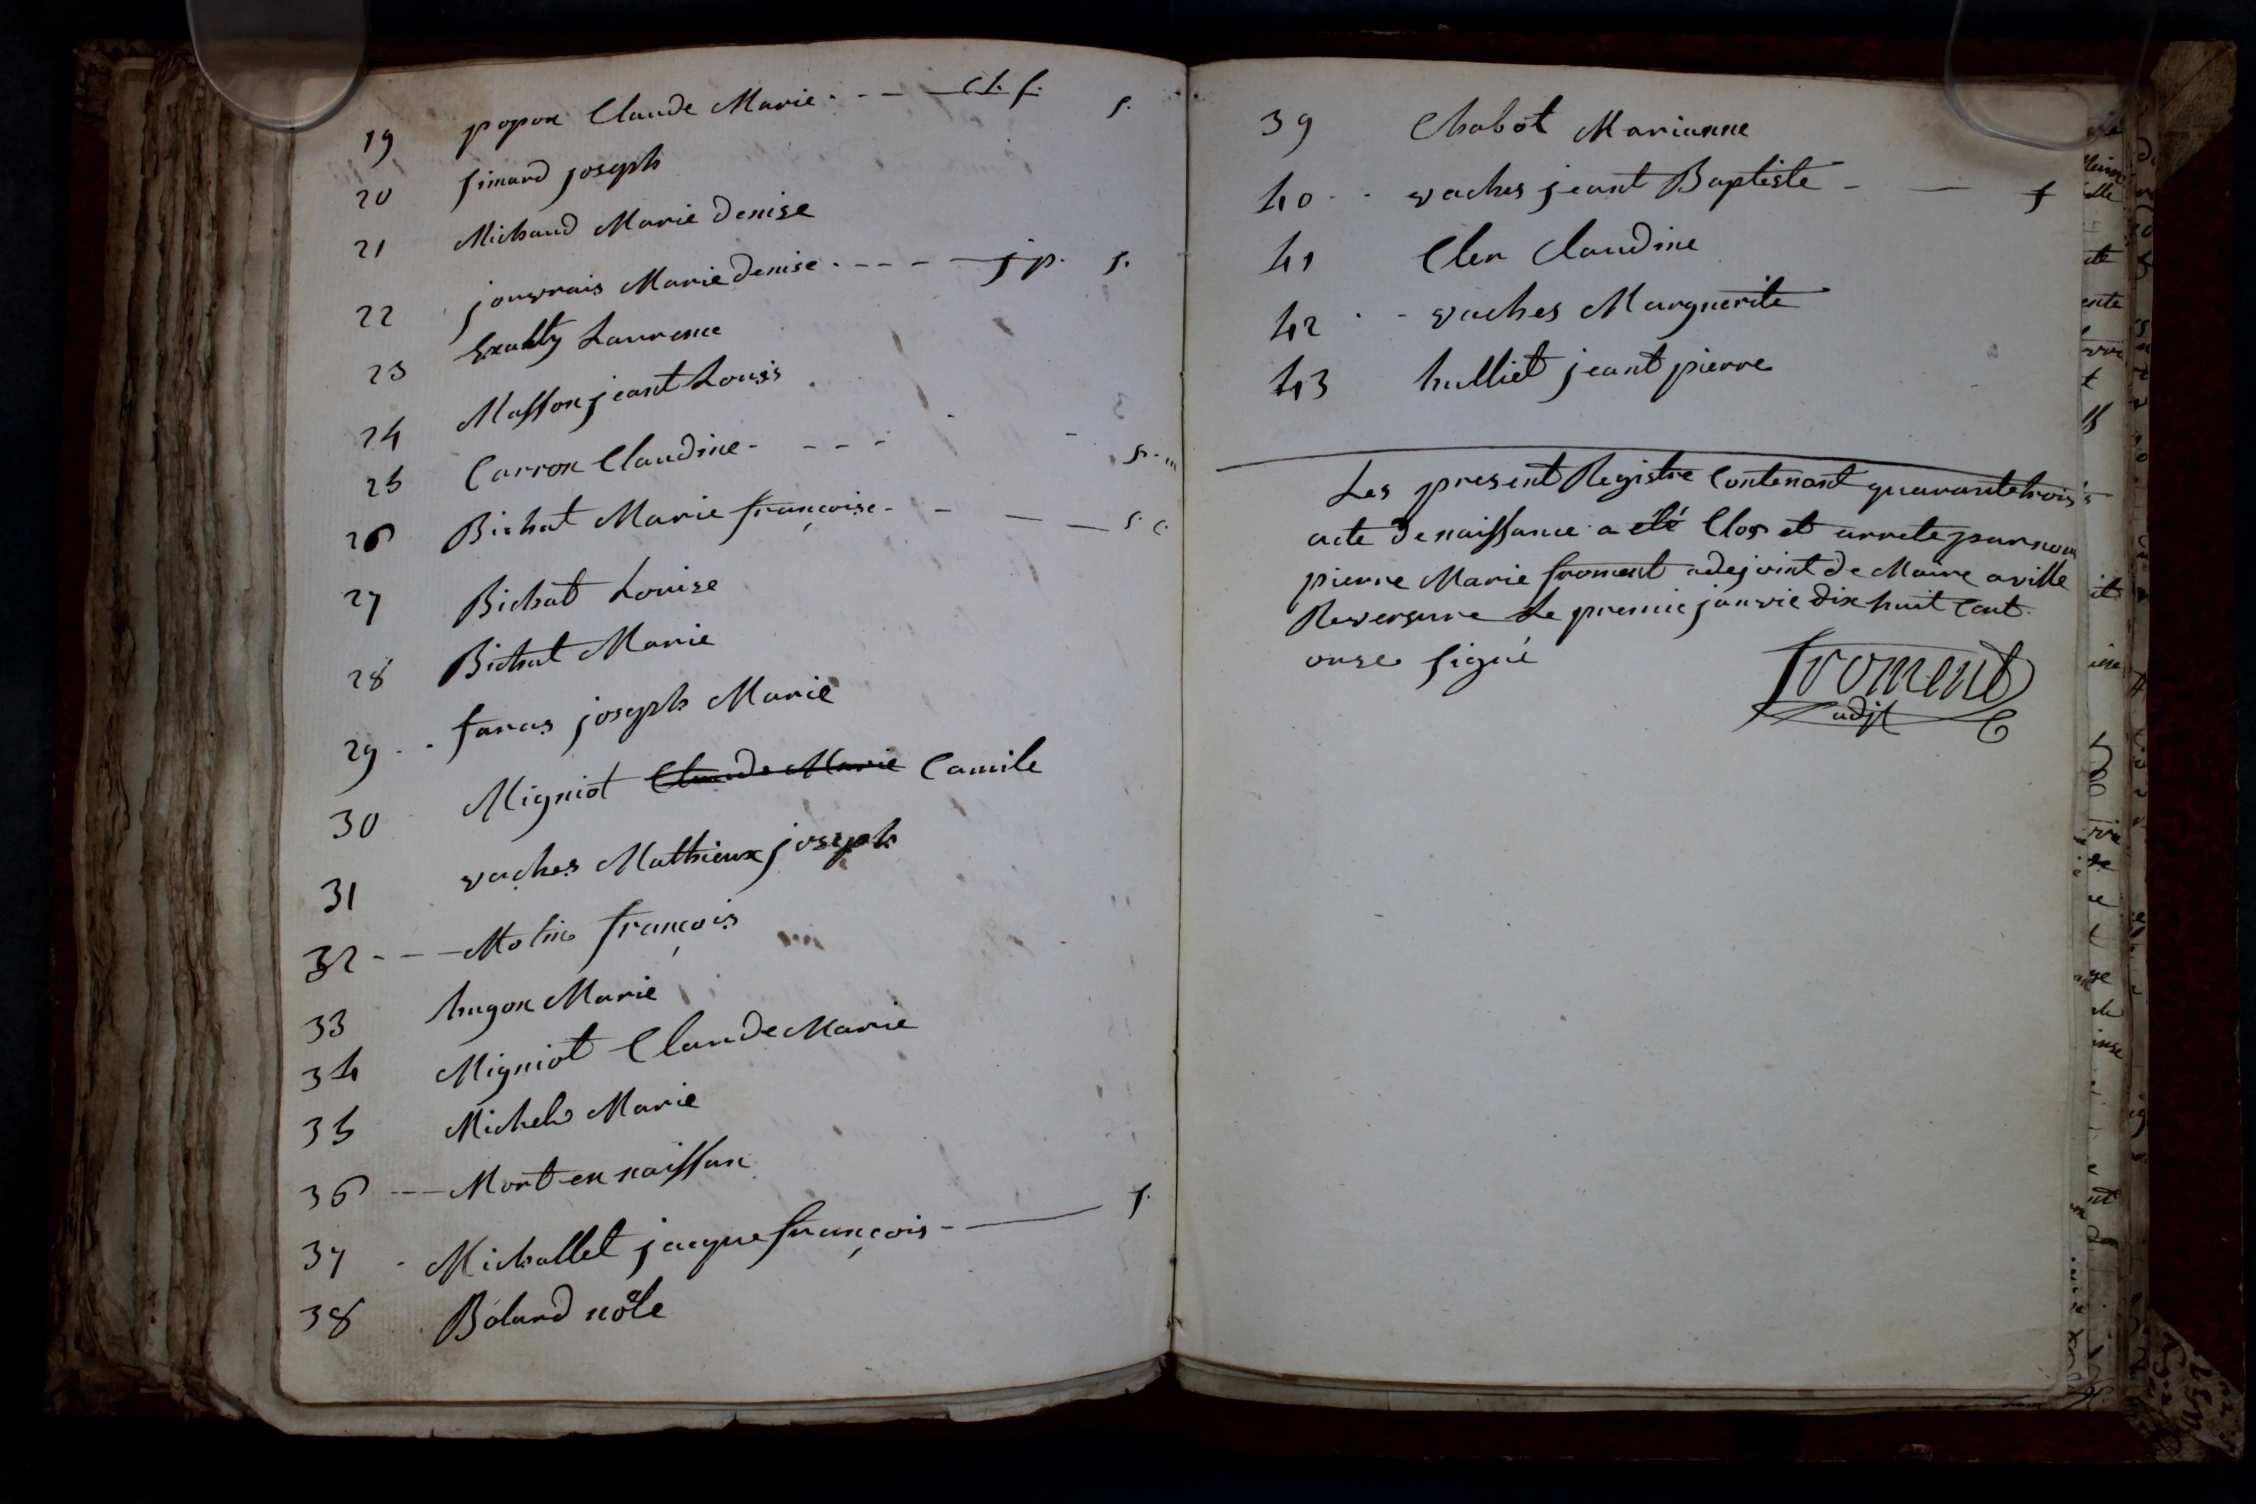 19 popon Claude Marie - - - - cl. f. f.
20 simard joseph
21 Michaud Marie denise
22 jouvrais Marie denise - - - - j p. f.
23 Laurence
24 Masson jeant Louis
25 Carron Claudine - - - -
26 Bichat Marie françoise - - - -
27 Bichat Louise
28 Bichat Marie
29 - - faras joseph Marie
30 Migniot Claude Marie Camile
31 vaches Mathieux joseph
32 - - - Molin françois
33 hugon Marie
34 Migniot Claude Marie
35 Michel Marie
36 - - - Mort en naissan
37 - Michallet jacque françois - - f.
38 Boland nöle
39 Chabot Marianne
40 - - vaches jeant Baptiste - - f
41 Cler Claudine
42 - - vaches Marguerite
43 hulliet jeant pierre
Les present Registre Contenant quarante trois
acte de naissance a été Clos et arrete par nou
pierre Marie froment adejoint de Maire a ville
Reversure Le premie janvie dix huit Cent
onse signé
froment
adjt